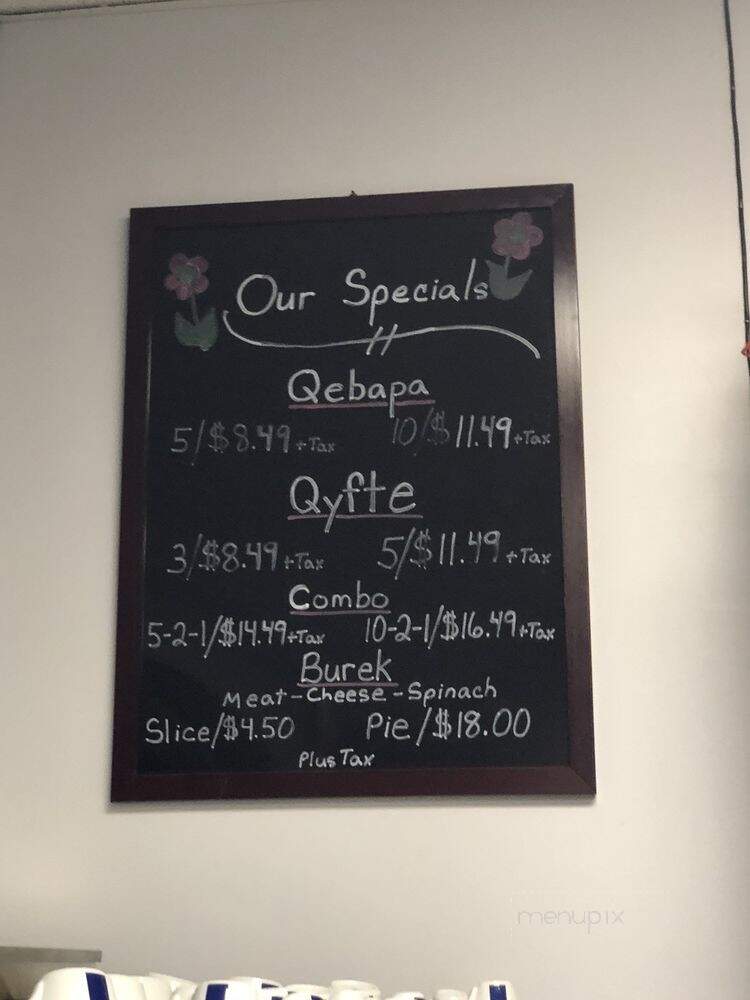 Our Specials
Qebapa
5/$8.49+Tax 10/$11.49+Tax
Qyfte
3/$8.49+Tax 5/$11.49+Tax
Combo
5-2-1/$14.49+Tax 10-2-1/$16.49+Tax
Burek
Meat-Cheese-Spinach
Slice/$4.50 Pie/$18.00
Plus Tax
menupix